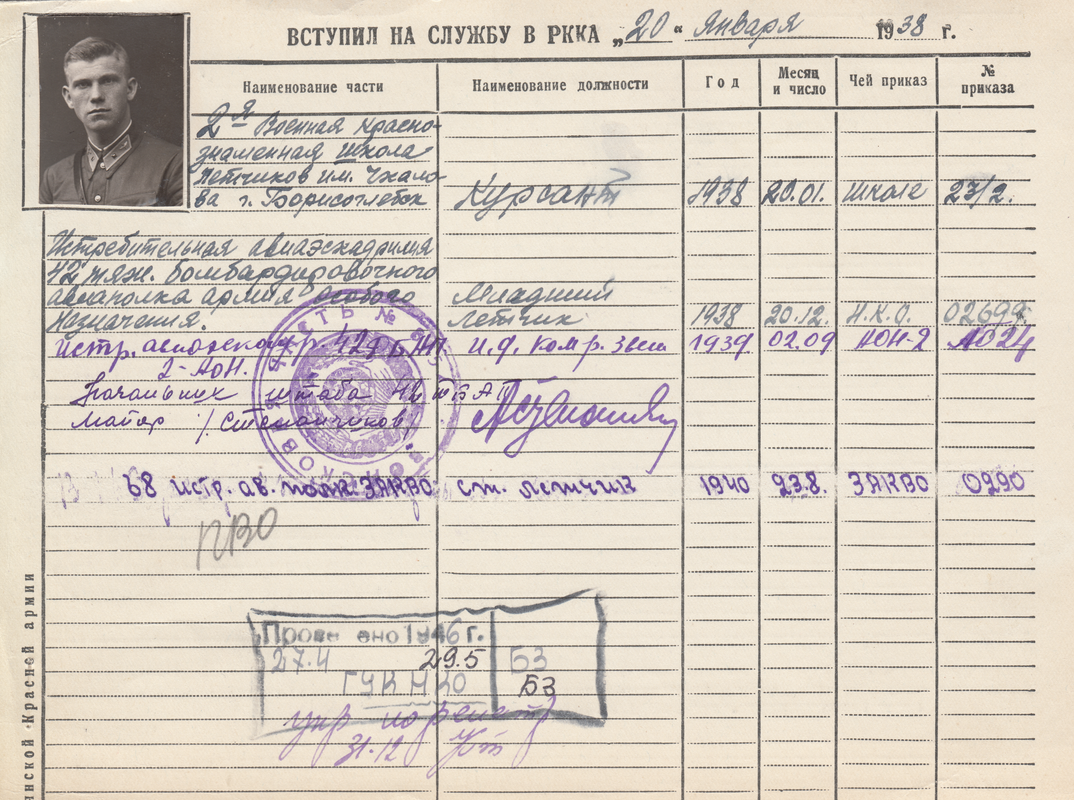 ВСТУПИЛ НА СЛУЖБУ В РККА „20“ Января 1938 г.
Наименование части Наименование должности Год Месяц и число Чей приказ № приказа
2я Военная Красно-
знаменная школа
летчиков им. Чкало-
ва г. Борисоглебск Курсант 1938 20.01. школе 23/2.
Истребительная авиаэскадрилия
42 тяж. бомбардировочного
авиаполка армия особого Младший
Назначения. летчик 1938 20.12. Н.К.О. 02694.
истр. авиоэскадр. 42 И.д. ком р. звена 1939 02.09 АОН-2 №024
2-АОН.
Начальник штаба 42 ТБАП
майор /Степанчиков/
68 истр. ав. полк ЗАКВО. ст. летчик 1940 23.8. ЗАКВО 0290
ПВО
Прове ено 1946 г.
27.4 29.5 БЗ
ГУК НКО БЗ
31.12
нской Красной армии